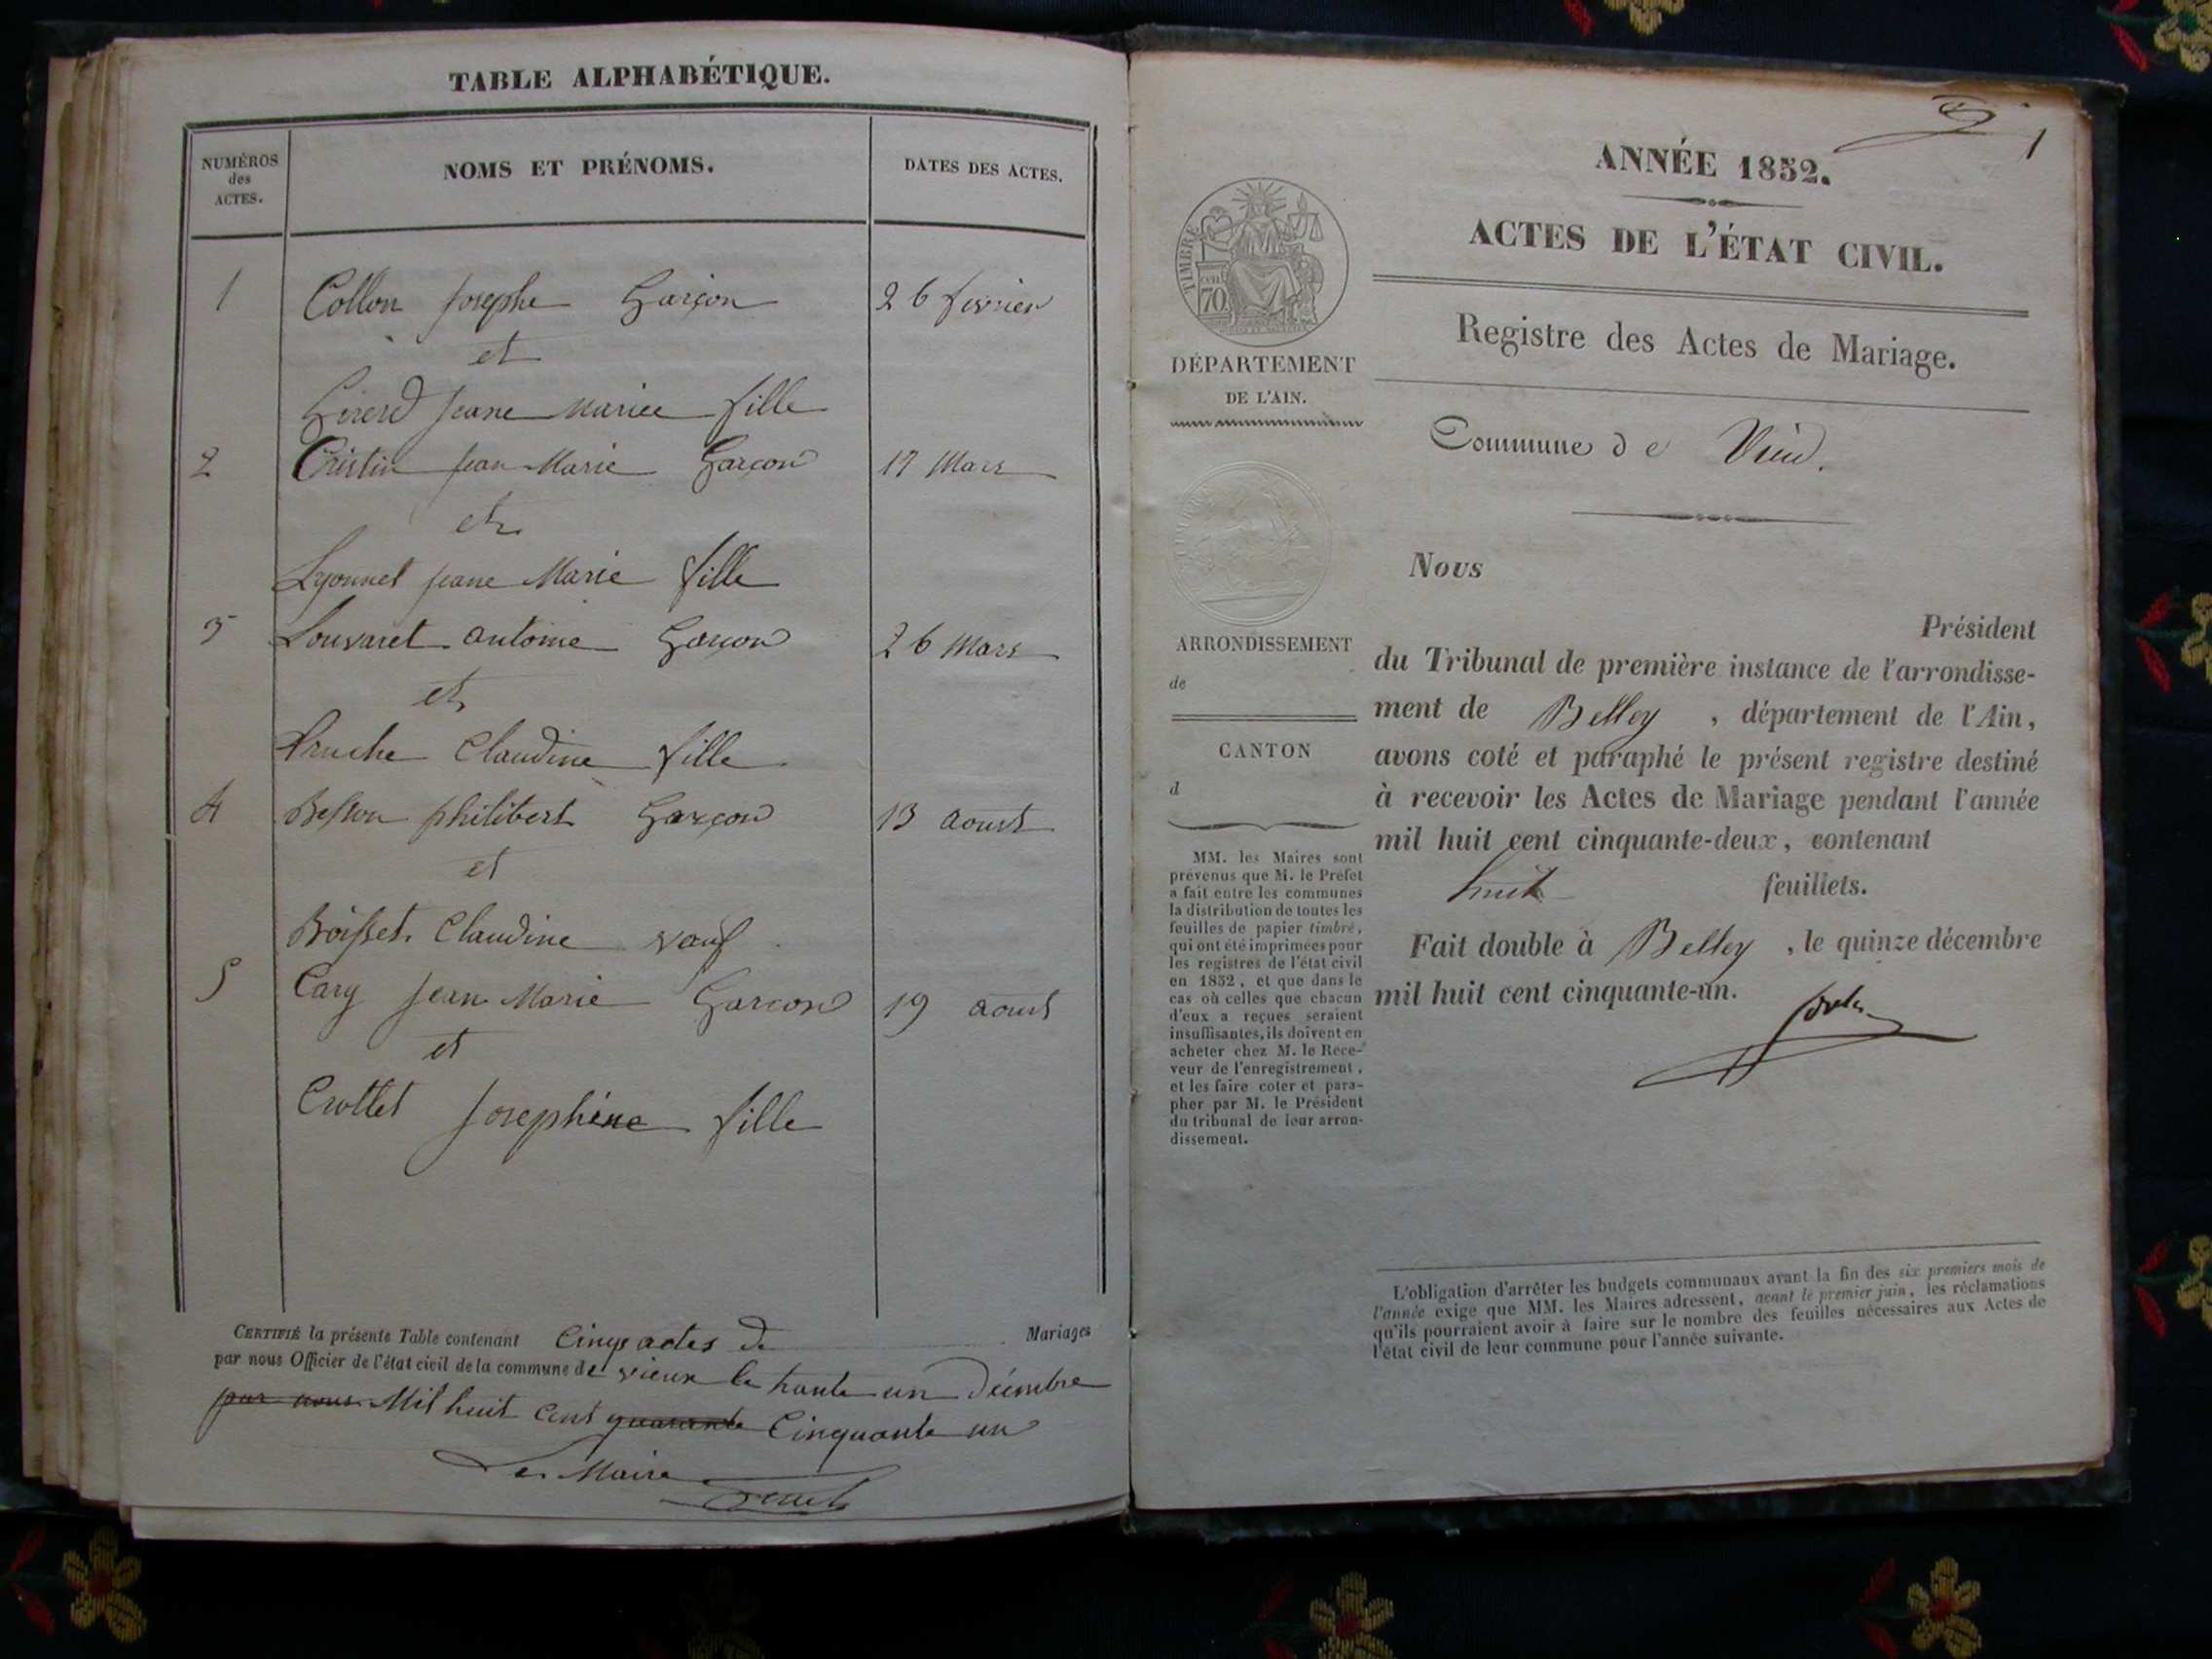 TABLE ALPHABÉTIQUE.
NUMÉROS
des
ACTES.
NOMS ET PRÉNOMS.
DATES DES ACTES.
1 Collon Josephe Garçon 26 fevrier
et
Girerd Jeane Mariee fille
2 Cristin Jean Marie Garçon 17 Mars
et
Lyonnet Jeane Marie fille
3 Louvaret antoine Garçon 26 Mars
et
Claudine fille
4 Besson philibert Garçon 13 aoust
et
Boisset Claudine veuf
5 Cary Jean Marie Garcon 19 aoust
et
Crottet Josephine fille
CERTIFIÉ la présente Table contenant Cinq actes de Mariages
par nous Officier de l'état civil de la commune de vieux le trante un Décmbre
par nous Mil huit Cent quarante Cinquante un
Le Maire
1
ANNÉE 1852.
ACTES DE L'ÉTAT CIVIL.
Registre des Actes de Mariage.
TIMBRE
CENT
70
DÉPARTEMENT
DE L'AIN.
ARRONDISSEMENT
de
CANTON
d
MM. les Maires sont
prévenus que M. le Préfet
a fait entre les communes
la distribution de toutes les
feuilles de papier timbré,
qui ont été imprimées pour
les registres de l'état civil
en 1852, et que dans le
cas où celles que chacun
d'eux a reçues seraient
insuffisantes, ils doivent en
acheter chez M. le Rece-
veur de l'enregistrement,
et les faire coter et para-
pher par M. le Président
du tribunal de leur arron-
dissement.
Commune de Vieu.
Nous
Président
du Tribunal de première instance de l'arrondisse-
ment de Belley, département de l'Ain,
avons coté et paraphé le présent registre destiné
à recevoir les Actes de Mariage pendant l'année
mil huit cent cinquante-deux, contenant
huit feuillets.
Fait double à Belley, le quinze décembre
mil huit cent cinquante-un.
L'obligation d'arrêter les budgets communaux avant la fin des six premiers mois de
l'année exige que MM. les Maires adressent, avant le premier juin, les réclamations
qu'ils pourraient avoir à faire sur le nombre des feuilles nécessaires aux Actes de
l'état civil de leur commune pour l'année suivante.